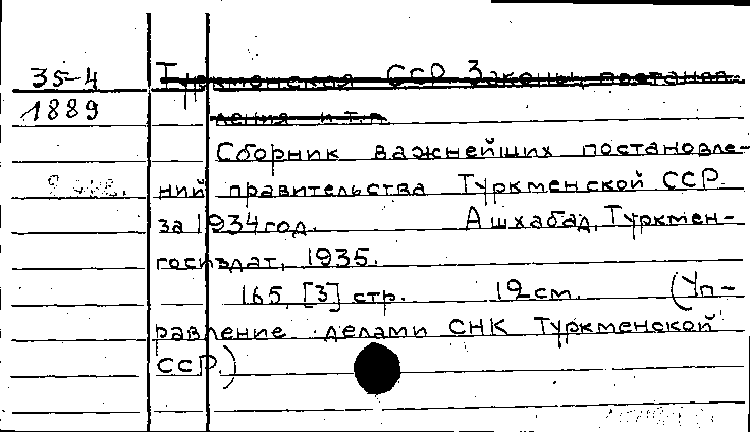 35-4 Туркменская ССР Законы, постанов-
1889 ления и т.п.
Сборник важнейших постановле-
ний правительства Туркменской ССР
за 1934 год. Ашхабад, Туркмен-
госиздат, 1935.
165, [3] стр. 19 см. (Уп-
равление делами СНК Туркменской
ССР.)